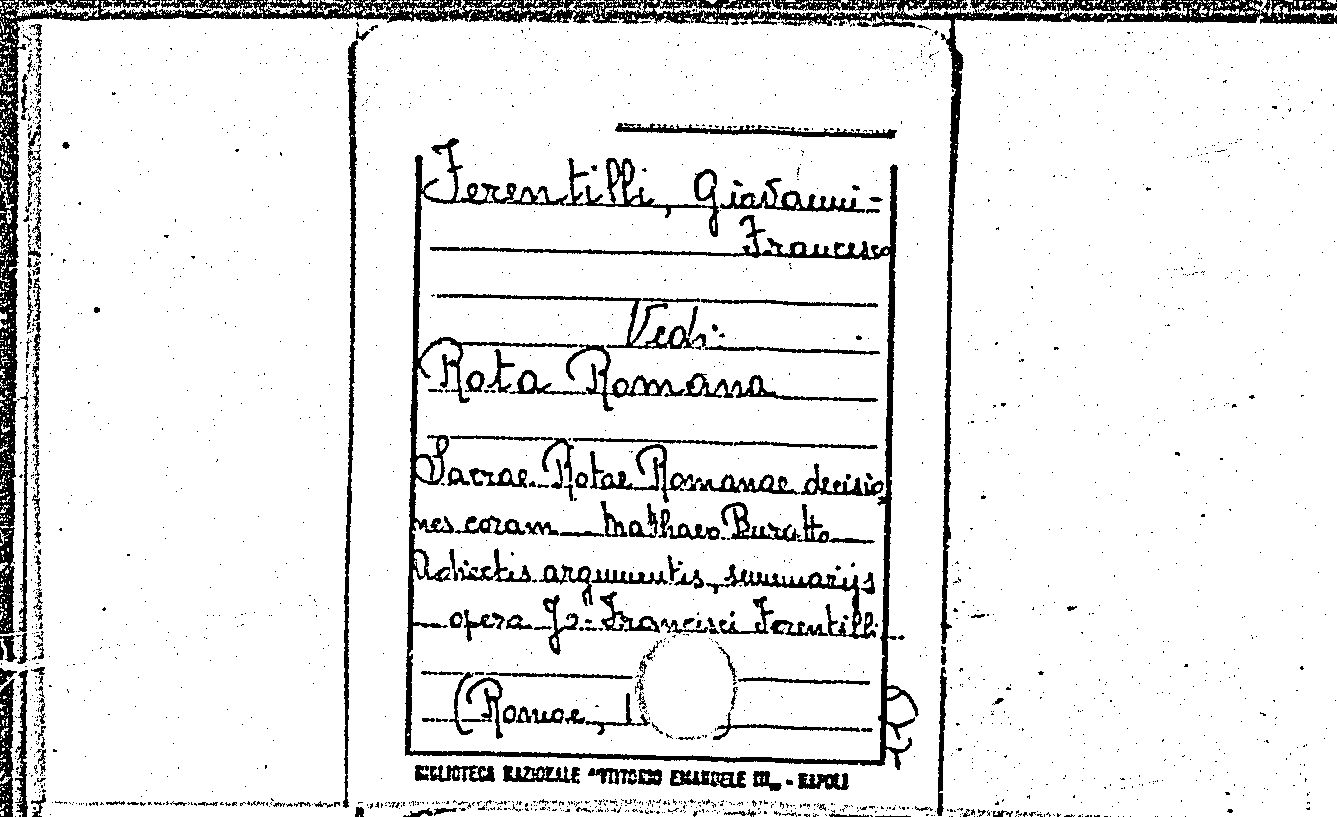 Ferentilli, Giovanni-
Francesco
Vedi:
Rota Romana
Sacrae Rotae Romanae decisio
nes coram Matthaeo Buratto
Adiectis argumentis, summarijs
opera Jo: Francisci Ferentilli
(Romae, 1
BIBLIOTECA NAZIONALE "VITTORIO EMANUELE III„ - NAPOLI